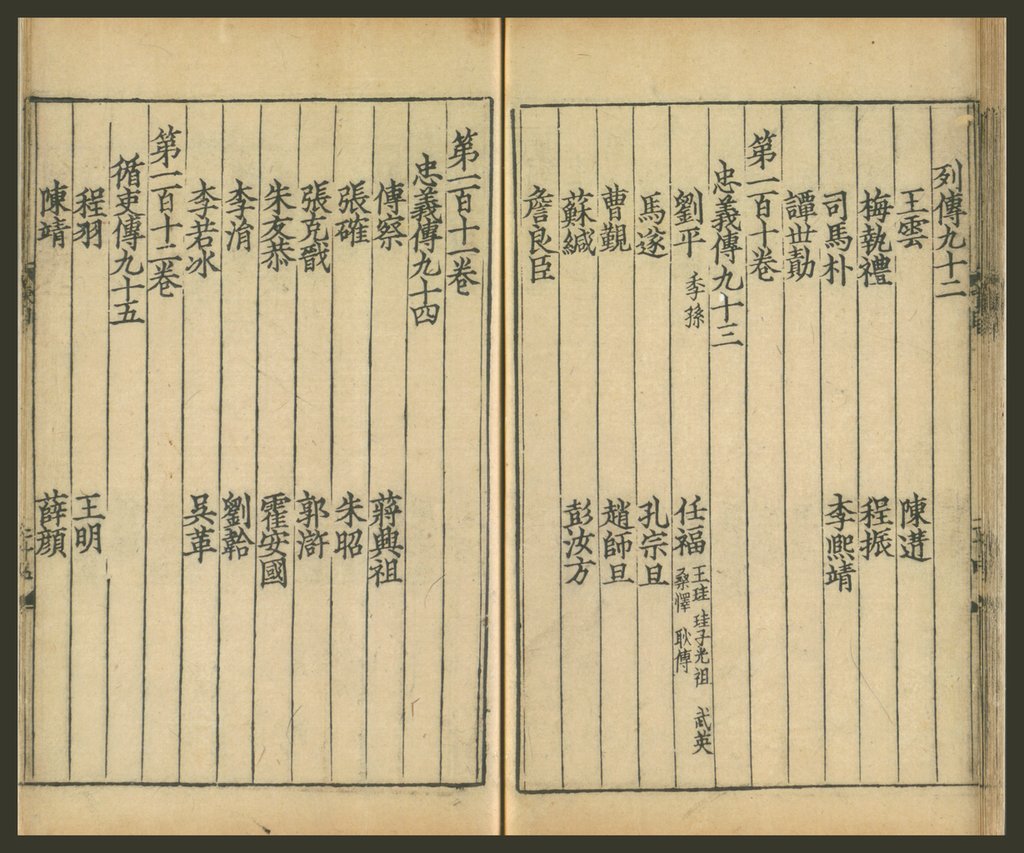 列傳九十二
王雲　陳遘
梅執禮　程振
司馬朴　李熙靖
譚世勣
第一百十卷
忠義傳九十三
劉平　季孫　任福　王珪　珪子光祖　武英　桑懌　耿傅
馬遂　孔宗旦
曹覲　趙師旦
蘇緘　彭汝方
詹良臣
第一百十一卷
忠義傳九十四
傅察　蔣興祖
張確　朱昭
張克戩　郭滸
朱友恭　霍安國
李涓　劉韐
李若冰　吳革
第一百十二卷
循吏傳九十五
程羽　王明
陳靖　薛顔